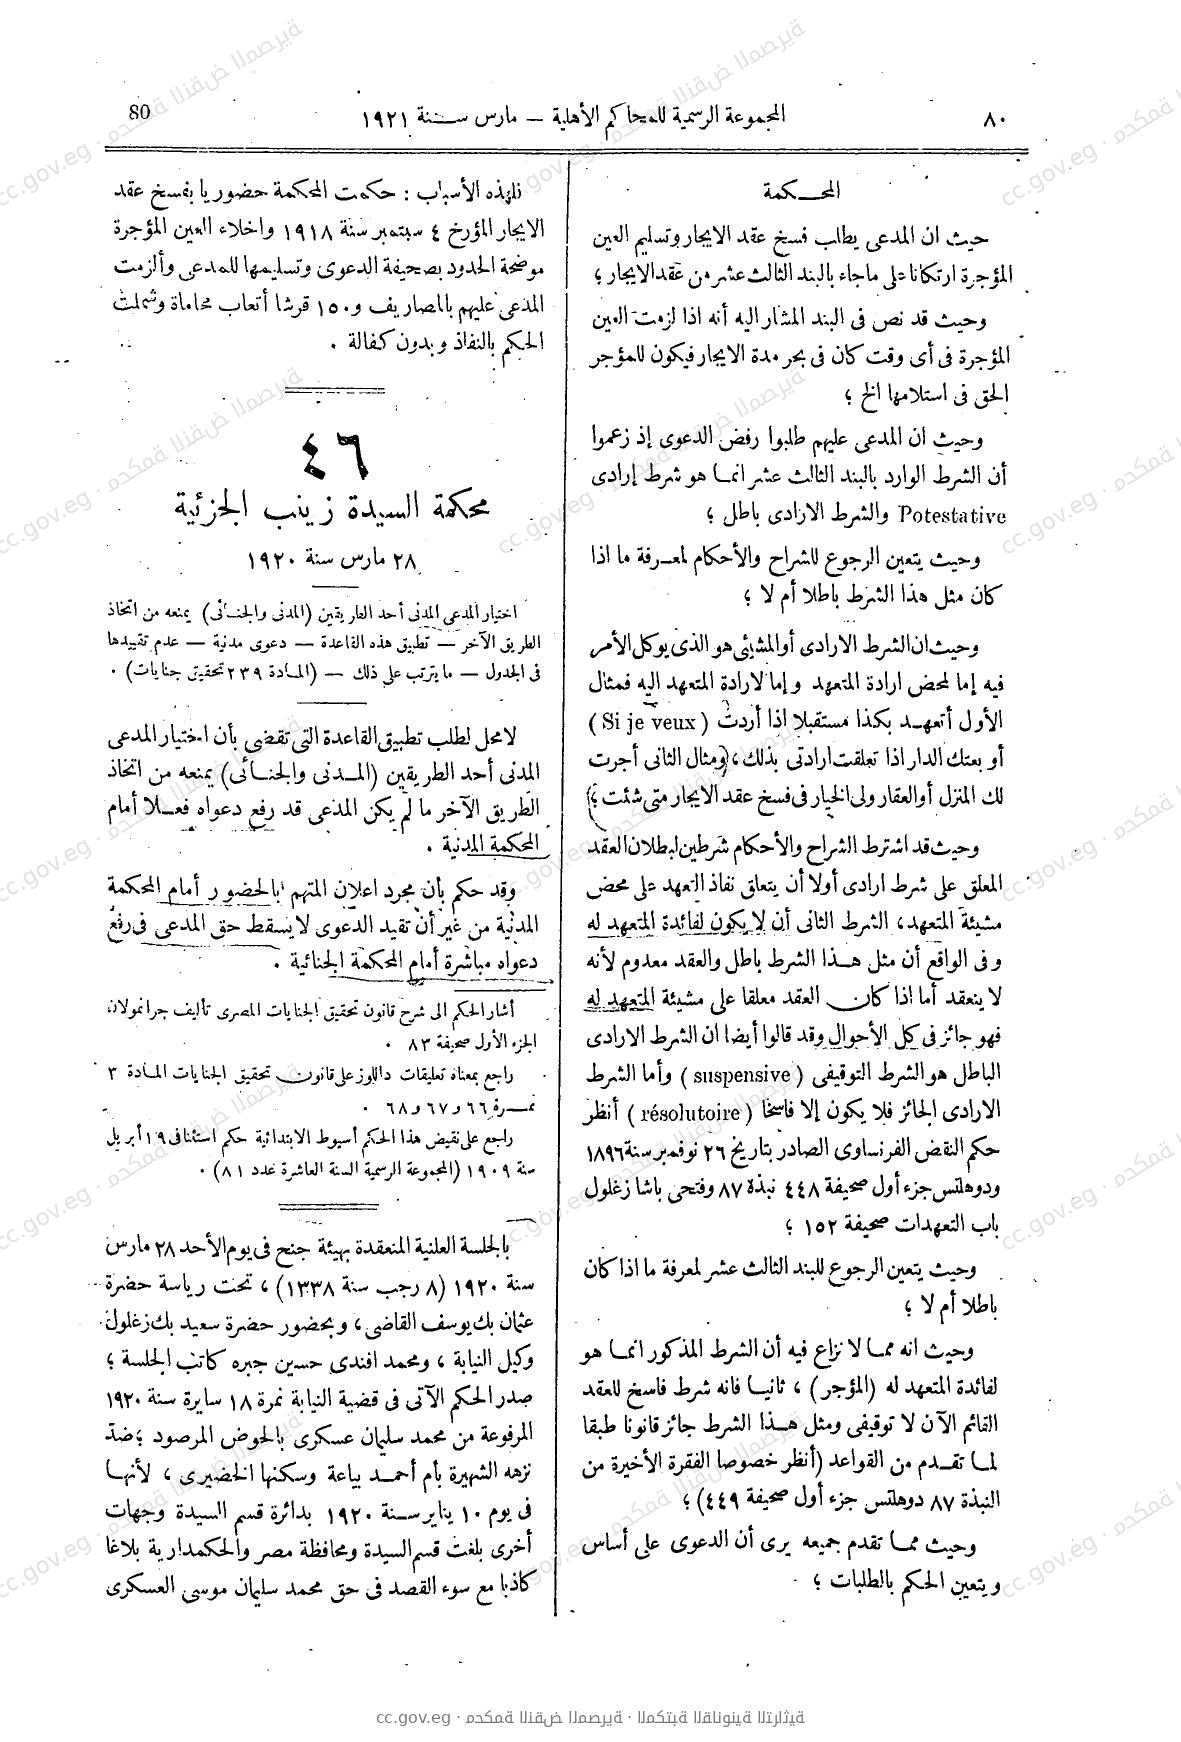 ٨٠
المجموعة الرسمية للمحاكم الأهلية — مارس سنة ١٩٢١
80
المحكمة
حيث ان المدعى يطلب فسخ عقد الايجار وتسليم العين
المؤجرة ارتكانا على ماجاء بالبند الثالث عشر من عقد الايجار ؛
وحيث قد نص فى البند المشار اليه أنه اذا لزمت العين
المؤجرة فى أى وقت كان فى بحر مدة الايجار فيكون للمؤجر
الحق فى استلامها الخ ؛
وحيث ان المدعى عليهم طلبوا رفض الدعوى إذ زعموا
أن الشرط الوارد بالبند الثالث عشر انما هو شرط إرادى
Potestative والشرط الارادى باطل ؛
وحيث يتعين الرجوع للشراح والأحكام لمعرفة ما اذا
كان مثل هذا الشرط باطلا أم لا ؛
وحيث ان الشرط الارادى أو المشيئى هو الذى يوكل الأمر
فيه إما لمحض ارادة المتعهد وإما لارادة المتعهد اليه فمثال
الأول أتعهد بكذا مستقبلا اذا أردت (Si je veux)
أو بعتك الدار اذا تعلقت ارادتى بذلك ، (ومثال الثانى أجرت
لك المنزل أو العقار ولى الخيار فى فسخ عقد الايجار متى شئت ؛)
وحيث قد اشترط الشراح والأحكام شرطين لبطلان العقد
المعلق على شرط ارادى أولا أن يتعلق نفاذ التعهد على محض
مشيئة المتعهد ، الشرط الثانى أن لا يكون لفائدة المتعهد له
وفى الواقع أن مثل هذا الشرط باطل والعقد معدوم لأنه
لا ينعقد أما اذا كان العقد معلقا على مشيئة المتعهد له
فهو جائز فى كل الأحوال وقد قالوا أيضا ان الشرط الارادى
الباطل هو الشرط التوقيفى (suspensive) وأما الشرط
الارادى الجائز فلا يكون إلا فاسخا (résolutoire) أنظر
حكم النقض الفرنساوى الصادر بتاريخ ٢٦ نوفمبر سنة ١٨٩٦
ودوهلتس جزء أول صحيفة ٤٤٨ نبذة ٨٧ وفتحى باشا زغلول
باب التعهدات صحيفة ١٥٢ ؛
وحيث يتعين الرجوع للبند الثالث عشر لمعرفة ما اذا كان
باطلا أم لا ؛
وحيث انه مما لا نزاع فيه أن الشرط المذكور انما هو
لفائدة المتعهد له (المؤجر) ، ثانيا فانه شرط فاسخ للعقد
القائم الآن لا توقيفى ومثل هذا الشرط جائز قانونا طبقا
لما تقدم من القواعد (أنظر خصوصا الفقرة الأخيرة من
النبذة ٨٧ دوهلتس جزء أول صحيفة ٤٤٩) ؛
وحيث مما تقدم جميعه يرى أن الدعوى على أساس
ويتعين الحكم بالطلبات ؛
فلهذه الأسباب : حكمت المحكمة حضوريا بفسخ عقد
الايجار المؤرخ ٤ سبتمبر سنة ١٩١٨ واخلاء العين المؤجرة
موضحة الحدود بصحيفة الدعوى وتسليمها للمدعى وألزمت
المدعى عليهم بالمصاريف و ١٥٠ قرشا أتعاب محاماة وشملت
الحكم بالنفاذ وبدون كفالة .
٤٦
محكمة السيدة زينب الجزئية
٢٨ مارس سنة ١٩٢٠
اختيار المدعى المدنى أحد الطريقين (المدنى والجنائى) يمنعه من اتخاذ
الطريق الآخر — تطبيق هذه القاعدة — دعوى مدنية — عدم تقييدها
فى الجدول — ما يترتب على ذلك — (المادة ٢٣٩ تحقيق جنايات) .
لا محل لطلب تطبيق القاعدة التى تقضى بأن اختيار المدعى
المدنى أحد الطريقين (المدنى والجنائى) يمنعه من اتخاذ
الطريق الآخر ما لم يكن المدعى قد رفع دعواه فعلا أمام
المحكمة المدنية .
وقد حكم بأن مجرد اعلان المتهم بالحضور أمام المحكمة
المدنية من غير أن تقيد الدعوى لا يسقط حق المدعى فى رفع
دعواه مباشرة أمام المحكمة الجنائية .
أشار الحكم الى شرح قانون تحقيق الجنايات المصرى تأليف جرانمولان
الجزء الأول صحيفة ٨٣ .
راجع بمعناه تعليقات داللوز على قانون تحقيق الجنايات المادة ٣
نمرة ٦٦ و ٦٧ و ٦٨ .
راجع على نقيض هذا الحكم أسيوط الابتدائية حكم استئنافى ١٩ أبريل
سنة ١٩٠٩ (المجموعة الرسمية السنة العاشرة عدد ٨١) .
بالجلسة العلنية المنعقدة بهيئة جنح فى يوم الأحد ٢٨ مارس
سنة ١٩٢٠ (٨ رجب سنة ١٣٣٨) ، تحت رياسة حضرة
عثمان بك يوسف القاضى ، وبحضور حضرة سعيد بك زغلول
وكيل النيابة ، ومحمد افندى حسين جبره كاتب الجلسة ؛
صدر الحكم الآتى فى قضية النيابة نمرة ١٨ سايرة سنة ١٩٢٠
المرفوعة من محمد سليمان عسكرى بالحوض المرصود ؛ ضد
نزهه الشهيرة بأم أحمد بياعة وسكنها الخضيرى ، لأنها
فى يوم ١٠ يناير سنة ١٩٢٠ بدائرة قسم السيدة وجهات
أخرى بلغت قسم السيدة ومحافظة مصر والحكمدارية بلاغا
كاذبا مع سوء القصد فى حق محمد سليمان موسى العسكرى
cc.gov.eg · محكمة النقض المصرية · المكتبة القانونية التراثية